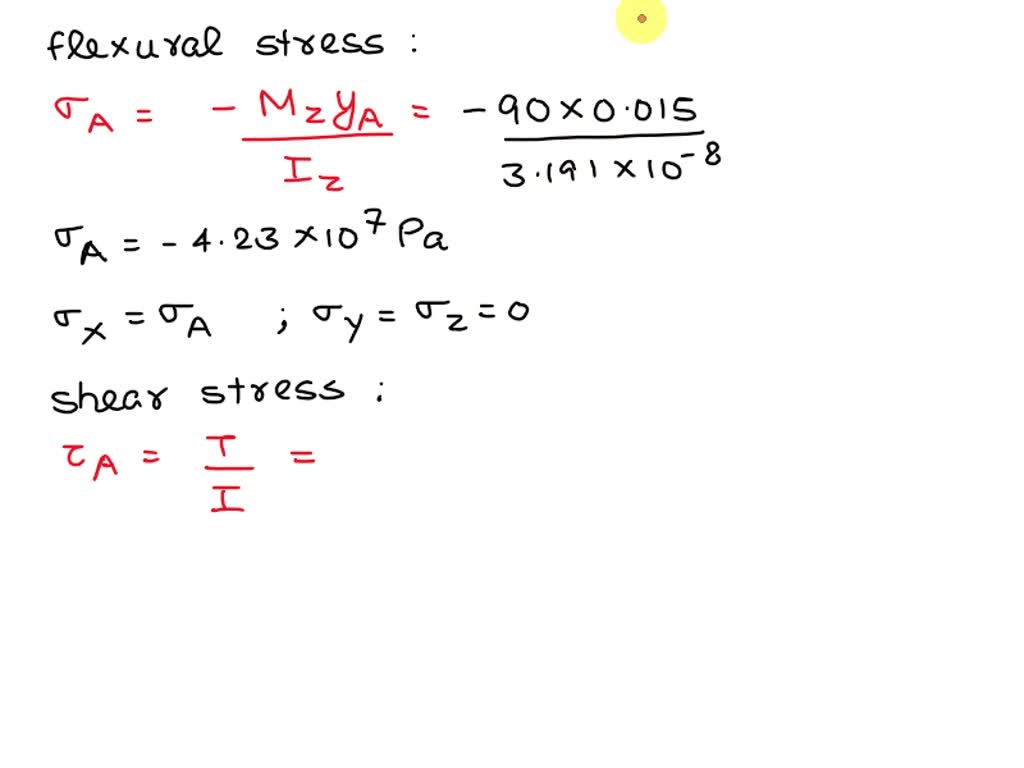 flexural stress :
σA = - MzyA / Iz = - 90 × 0.015 / 3.191 × 10⁻⁸
σA = - 4.23 × 10⁷ Pa
σx = σA ; σy = σz = 0
shear stress :
τA = T / I =